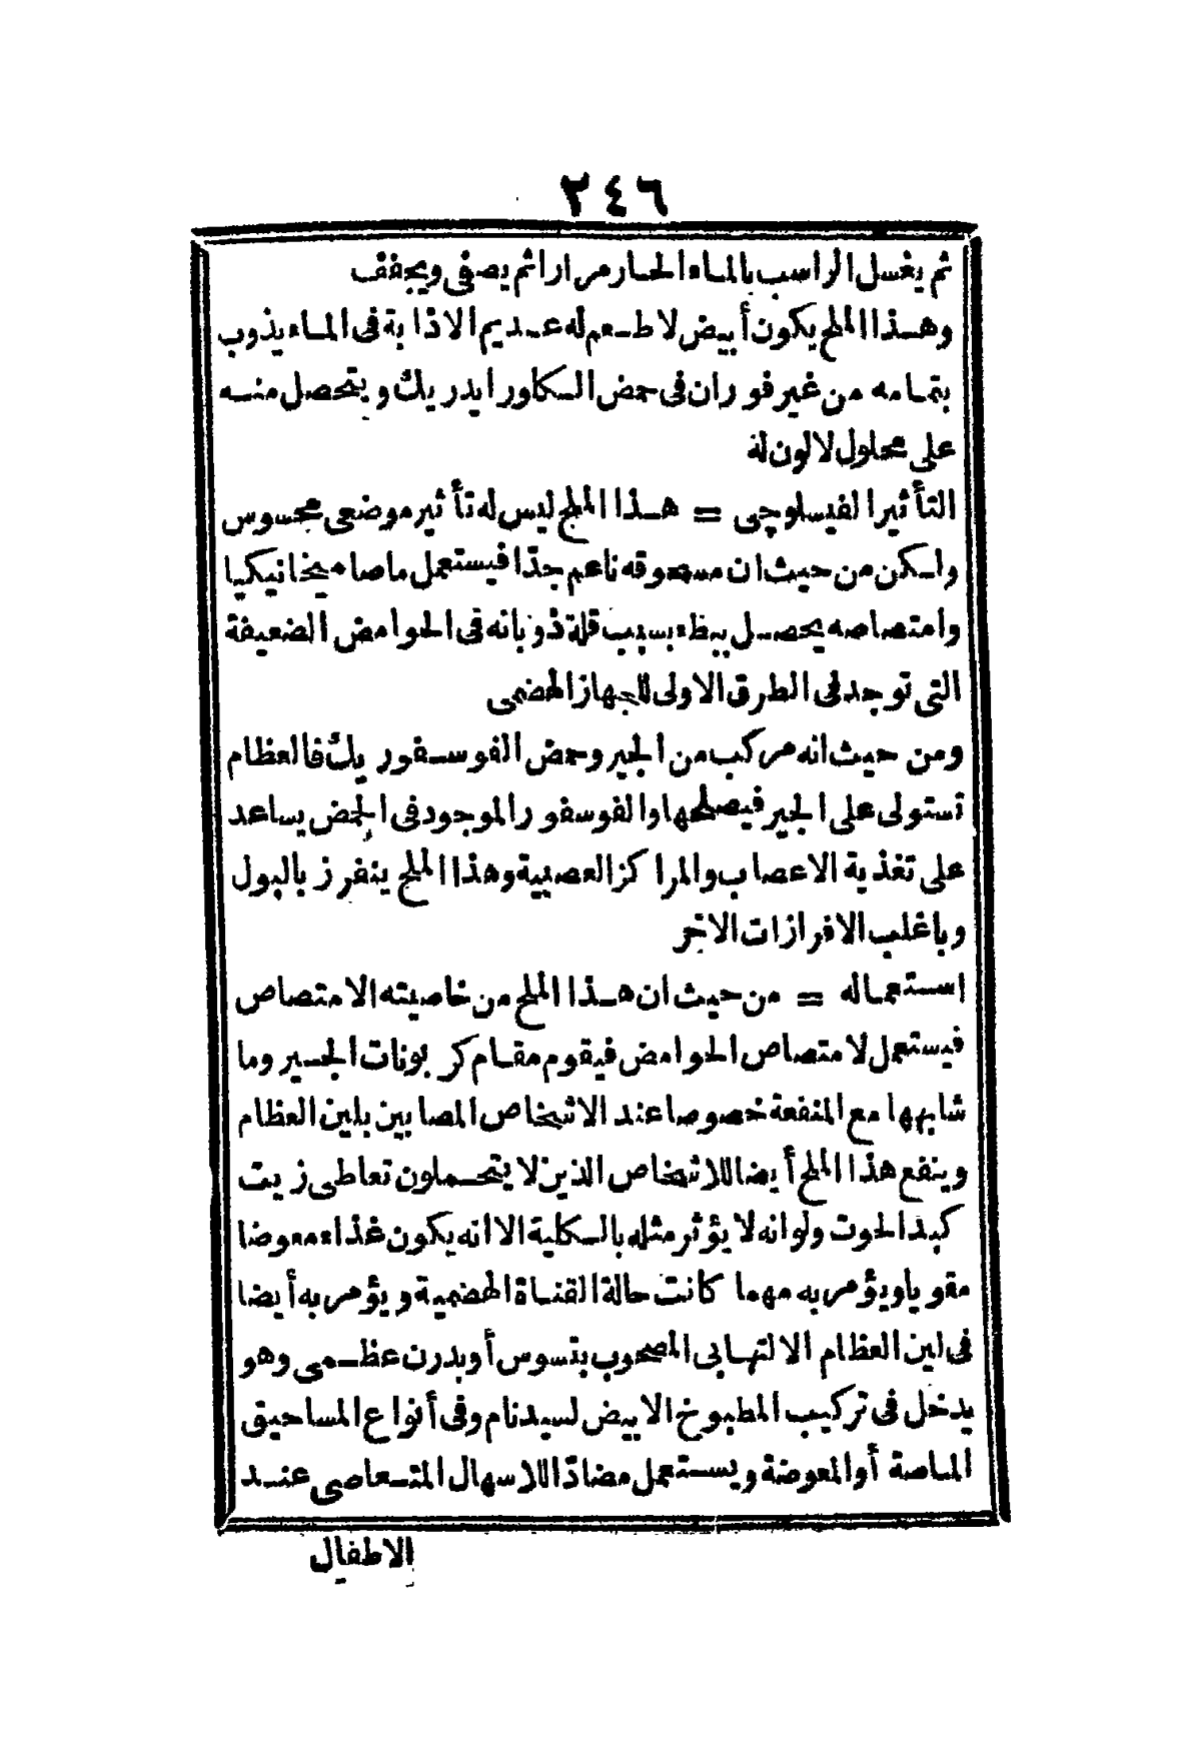 ٢٤٦
ثم يغسل الراسب بالماء الحار مرارا ثم يصفى ويجفف
وهذا الملح يكون أبيض لا طعم له عديم الاذابة فى الماء يذوب
بتمامه من غير فوران فى حمض الكلور ايدريك ويتحصل منه
على محلول لا لون له
التأثير الفيسلوجى = هذا الملح ليس له تأثير موضعى محسوس
ولكن من حيث ان مسحوقه ناعم جدّا فيستعمل ماصا ميخانيكيا
وامتصاصه يحصل ببطء بسبب قلة ذوبانه فى الحوامض الضعيفة
التى توجد فى الطرق الاولى للجهاز الهضمى
ومن حيث انه مركب من الجير وحمض الفوسفوريك فالعظام
تستولى على الجير فيصلحها والفوسفور الموجود فى الحمض يساعد
على تغذية الاعصاب والمراكز العصبية وهذا الملح ينفرز بالبول
وباغلب الافرازات الاخر
استعماله = من حيث ان هذا الملح من خاصيته الامتصاص
فيستعمل لامتصاص الحوامض فيقوم مقام كربونات الجير وما
شابهها مع المنفعة خصوصا عند الاشخاص المصابين بلين العظام
وينفع هذا الملح أيضا للاشخاص الذين لا يتحملون تعاطى زيت
كبد الحوت ولو انه لا يؤثر مثله بالكلية الا انه يكون غذاء معوضا
مقويا ويؤمر به مهما كانت حالة القناة الهضمية ويؤمر به أيضا
فى لين العظام الالتهابى المصحوب بتسوس أو بدرن عظمى وهو
يدخل فى تركيب المطبوخ الابيض لسيدنام وفى أنواع المساحيق
الماصة أو المعوضة ويستعمل مضادّا للاسهال المتعاصى عند
الاطفال